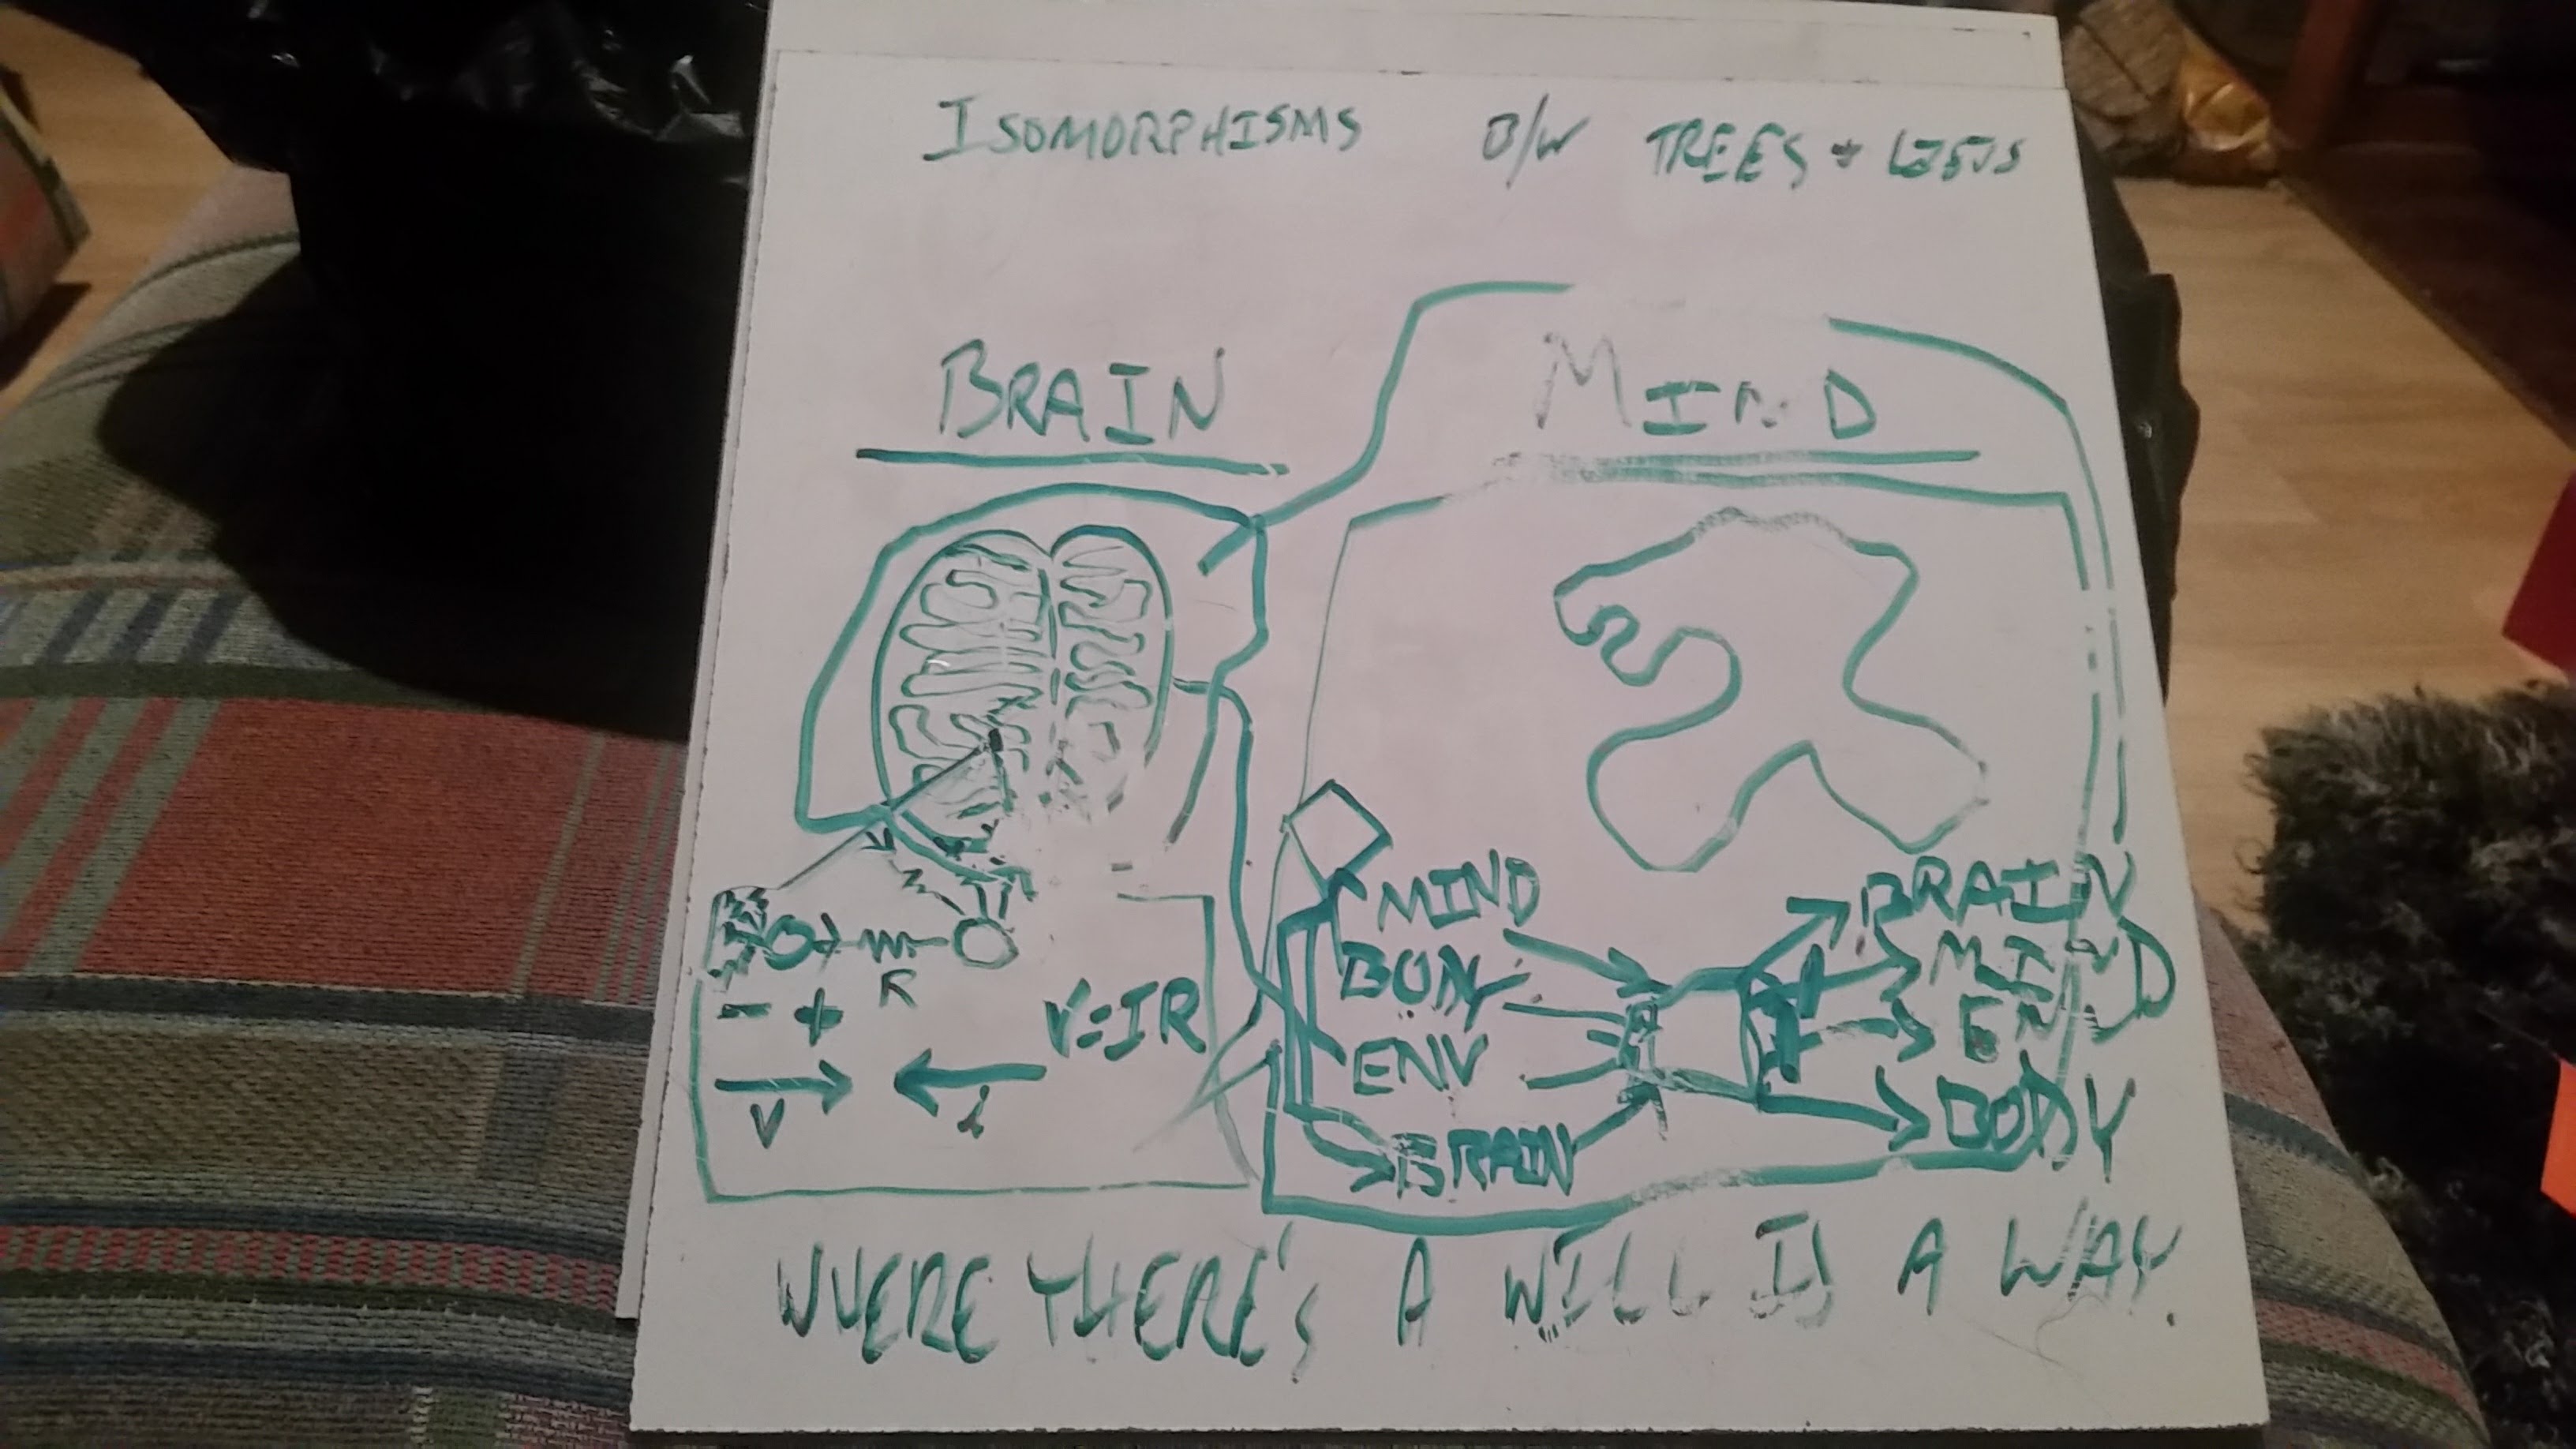 ISOMORPHISMS B/W TREES + LISTS
BRAIN MIND
R
- +
V=IR
V i
MIND
BODY
ENV
BRAIN
BRAIN
MIND
ENV
BODY
WHERE THERE'S A WILL IS A WAY.